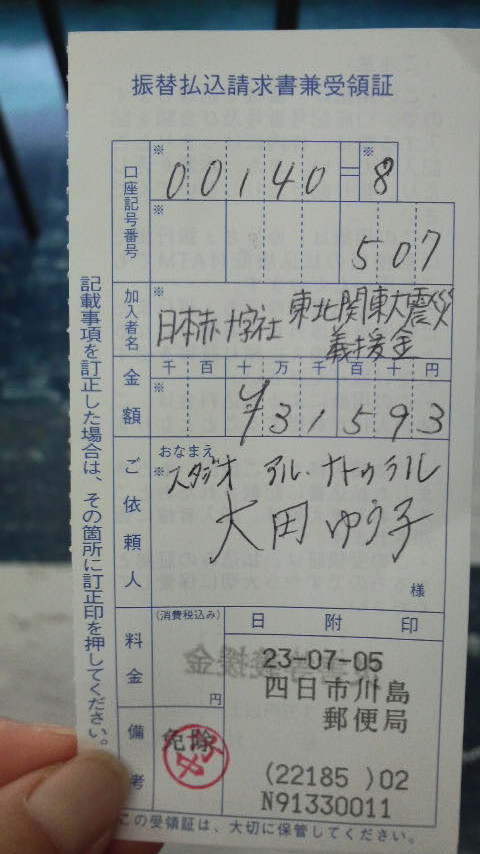 振替払込請求書兼受領証
口座記号番号
※ 00140 = ※ 8
※ 507
加入者名
※ 日本赤十字社 東北関東大震災
義援金
金額
千 百 十 万 千 百 十 円
※ ¥31593
ご依頼人
おなまえ
※ スタジオ アル・ナトゥラル
大田ゆう子
様
料金
(消費税込み)
円
備考
免除
日 附 印
23-07-05
四日市川島
郵便局
(22185 )02
N91330011
記載事項を訂正した場合は、その箇所に訂正印を押してください。
この受領証は、大切に保管してください。